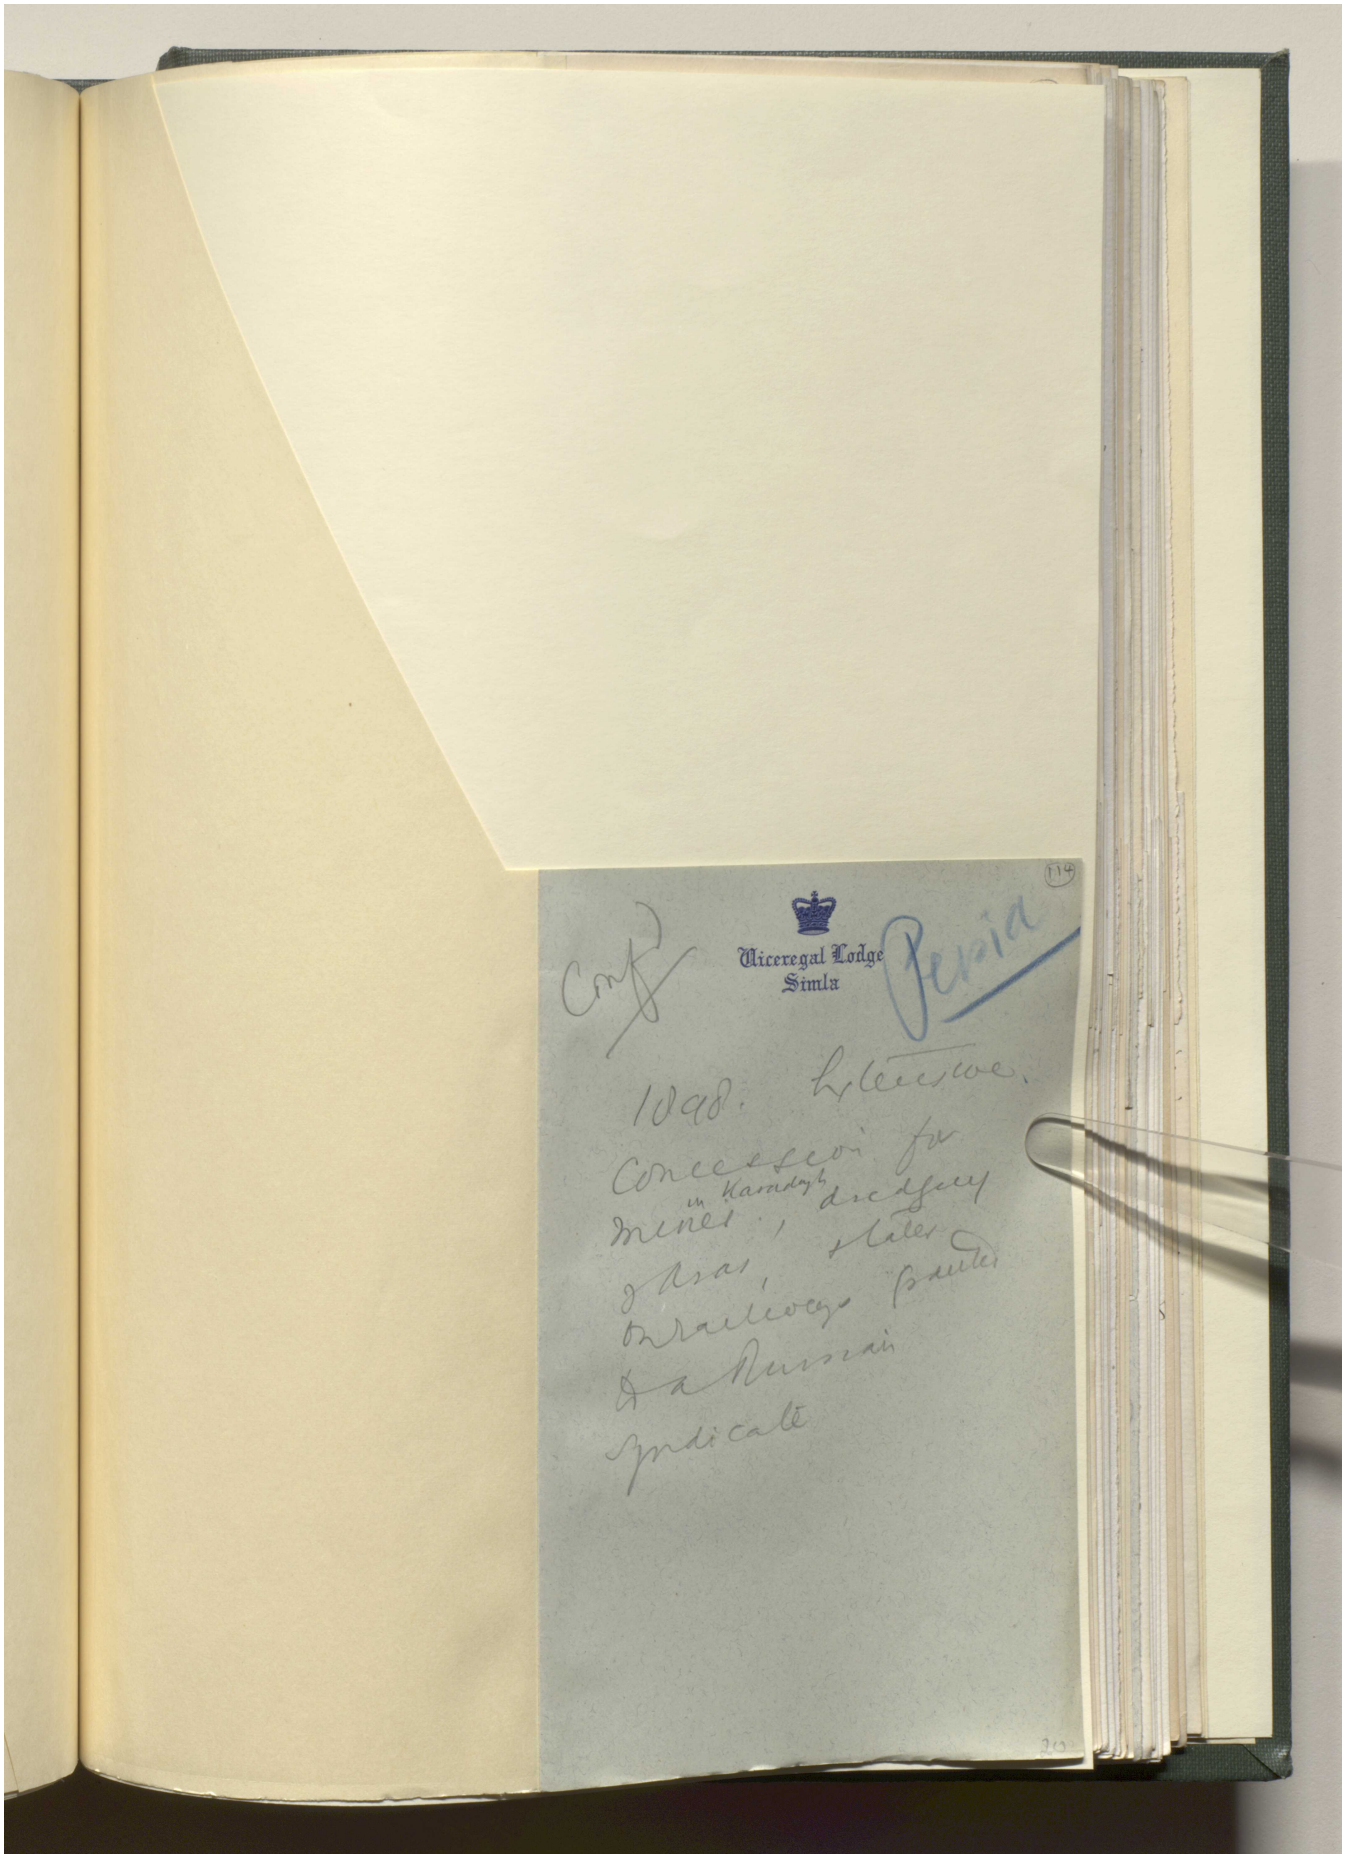 114
Conf
Viceregal Lodge
Simla
Persia
1898. Extensive
Concession for
in Karadagh
mines, dredging
of Aras,
on railways granted
to a Russian
Syndicate
20